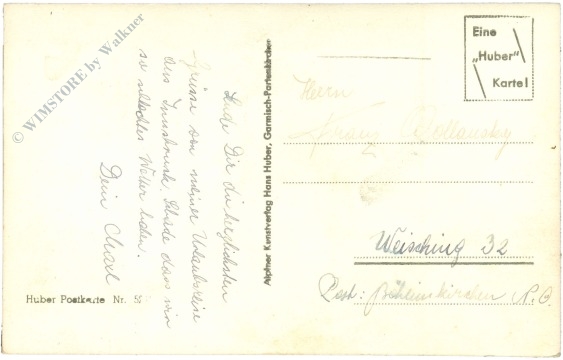 Sende Dir die herzlichsten
Grüsse von meiner Urlaubsreise
aus Innsbruck. Schade dass wir
so schlechtes Wetter haben.
Dein
© WIMSTORE by Walkner
Huber Postkarte Nr.
Alpiner Kunstverlag Hans Huber, Garmisch-Partenkirchen
Eine
„Huber"
Karte!
Herrn
Franz
Weisching 32
Post: Böheimkirchen N.Ö.